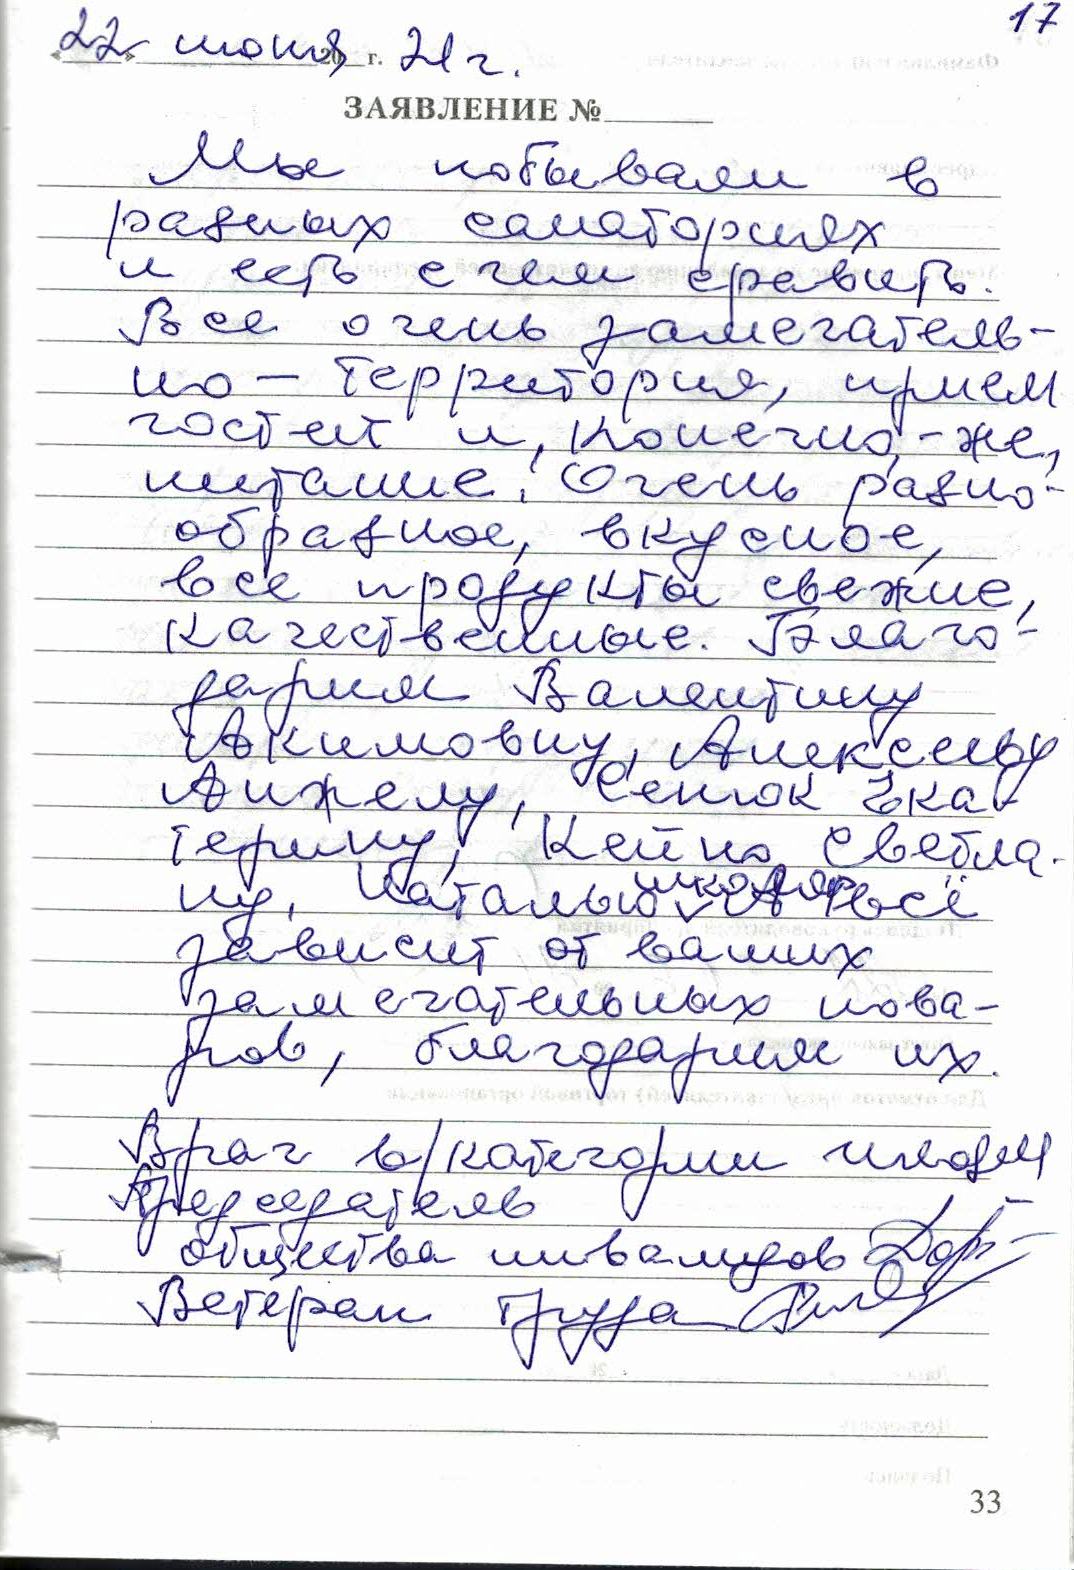 17
22 июня 20 г. 21 г.
ЗАЯВЛЕНИЕ №
Мы побывали в
разных санаториях
и есть с чем сравить.
Все очень замечатель-
но – территория, прием
гостей и, конечно, - же,
питание. Очень разно-
образное, вкусное,
все продукты свежие,
качественные. Благо-
дарим Валентину
Акимовну, Алексееву
Анжелу, Сенюк Ека-
терину, Кейно Светла-
ну, Наталью А всё
зависит от ваших
замечательных пова-
ров, благодарим их.
Врач в/категории
Председатель
общества инвалидов
Ветеран труда
33